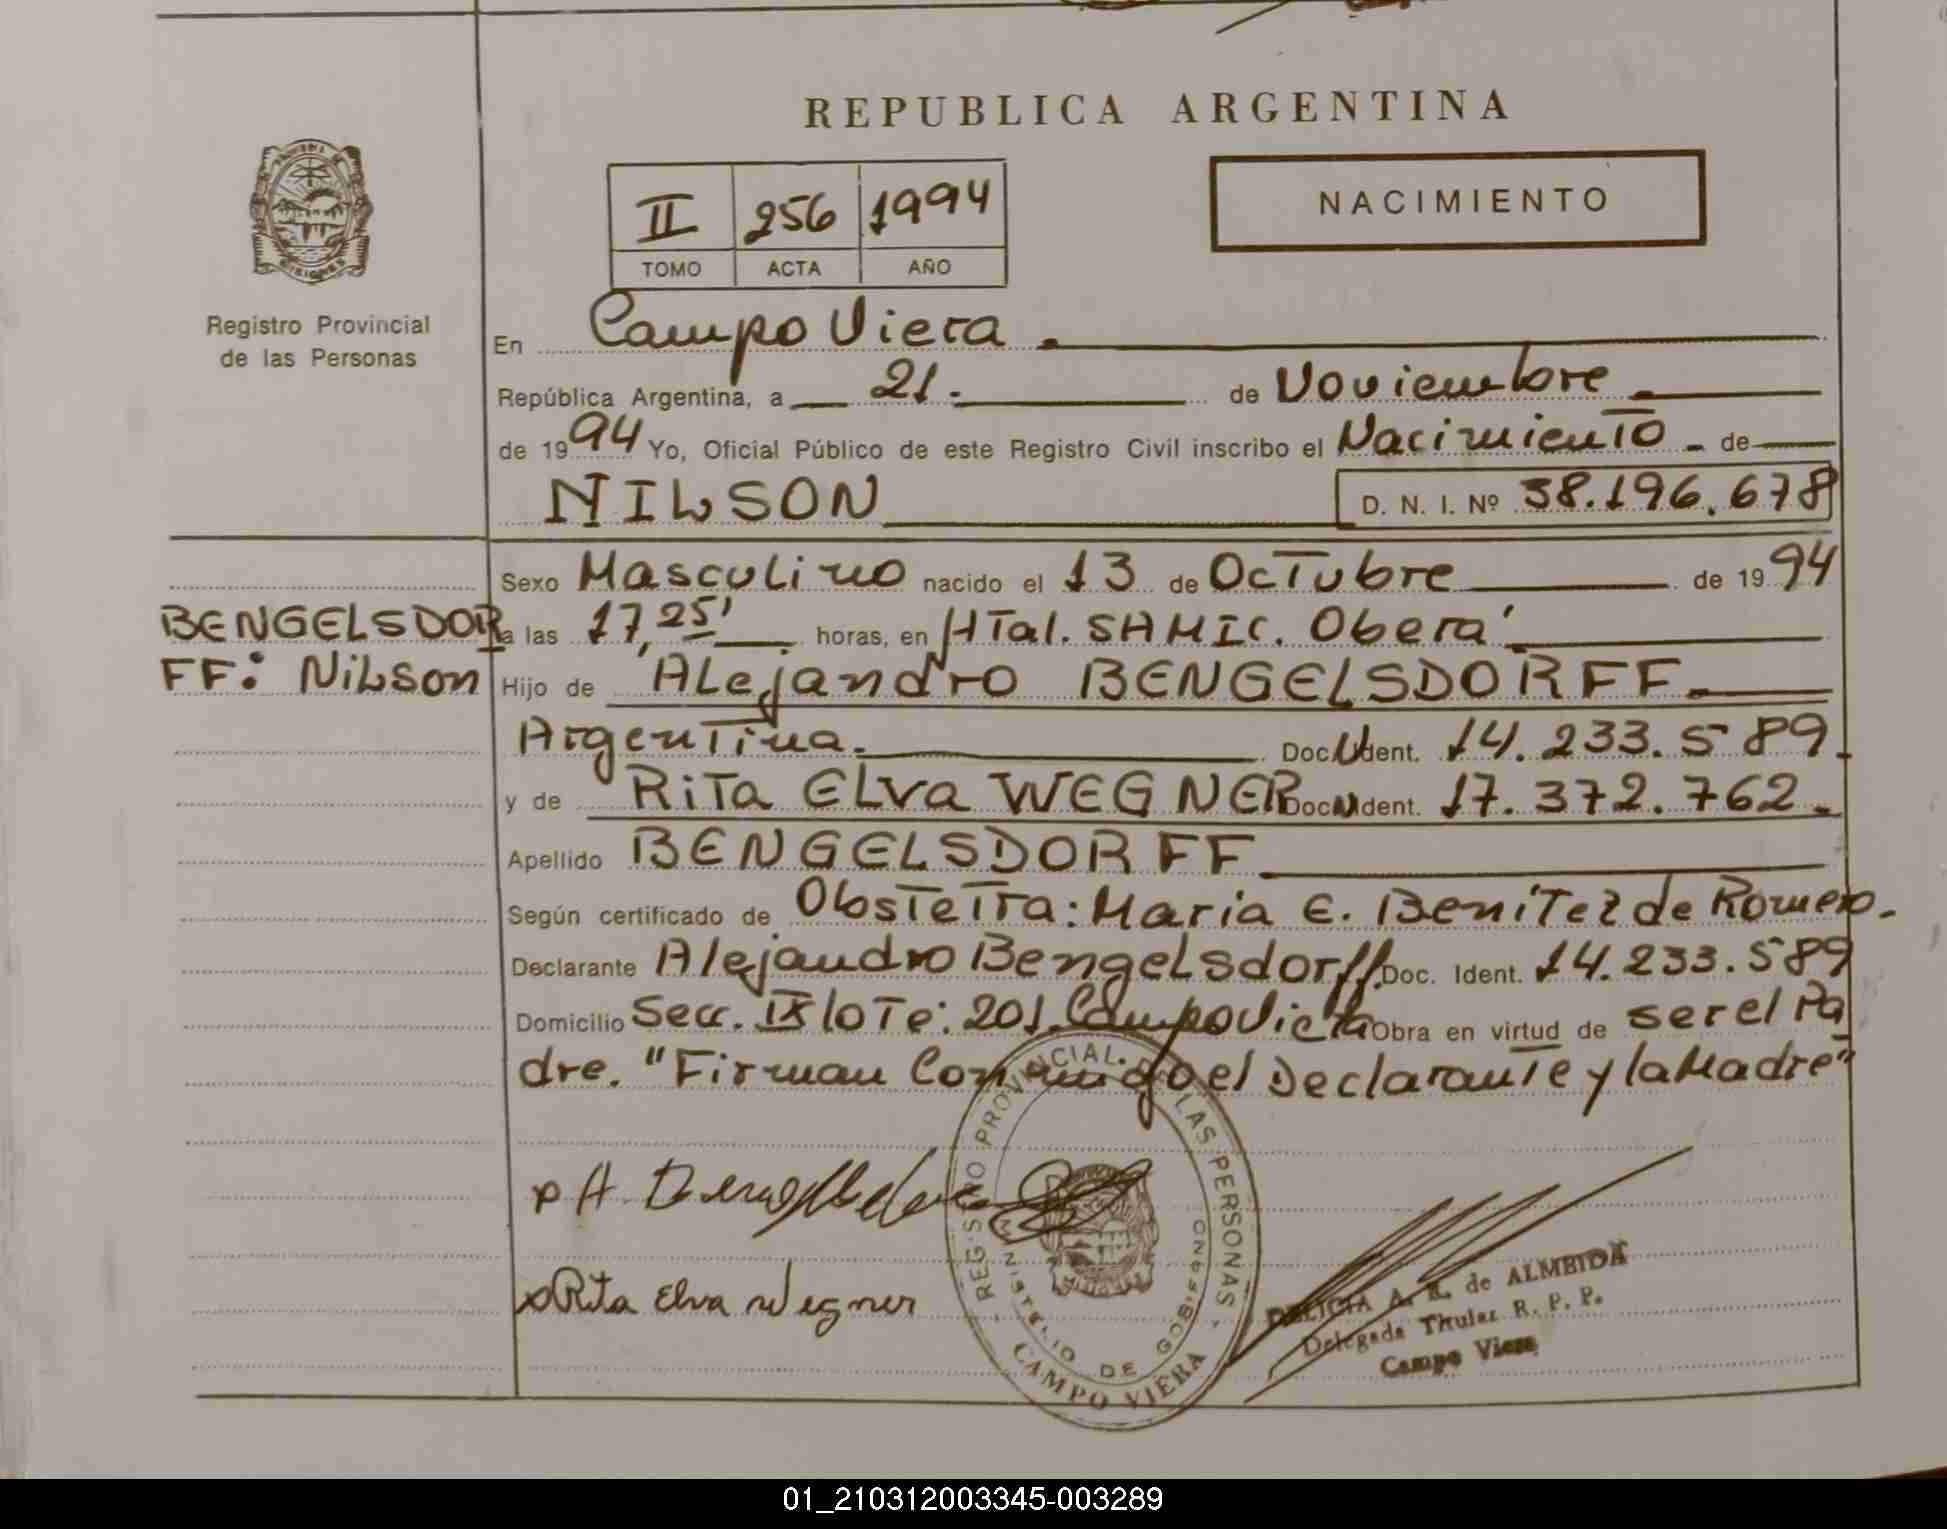 REPUBLICA ARGENTINA
II 256 1994
TOMO ACTA AÑO
NACIMIENTO
Registro Provincial
de las Personas
En Campo Viera.
República Argentina, a 21. de Noviembre
de 1994 Yo, Oficial Público de este Registro Civil inscribo el Nacimiento - de
NILSON D. N. I. Nº 38.196.678
Sexo Masculino nacido el 13 de Octubre de 1994
BENGELSDOR
FF: Nilson
a las 17,25' horas, en HTal. SAMIC. Oberá
Hijo de Alejandro BENGELSDORFF.
Argentina. Doc. Ident. 14.233.589
y de RiTa ELVa WEGNER Doc. Ident. 17.372.762.
Apellido BENGELSDORFF
Según certificado de Obstetra: Maria E. Benítez de Romero.
Declarante Alejandro Bengelsdorff. Doc. Ident. 14.233.589
Domicilio Secc. IX lote: 201. Campo Viera Obra en virtud de ser el Pa
dre. "Firman Conmigo el Declarante y la Madre"
REGISTRO PROVINCIAL DE LAS PERSONAS
MINISTERIO DE GOBIERNO
CAMPO VIERA
x Rita Elva Wegner
DELICIA A. R. de ALMEIDA
Delegada Titular R. P. P.
Campo Viera
01_210312003345-003289